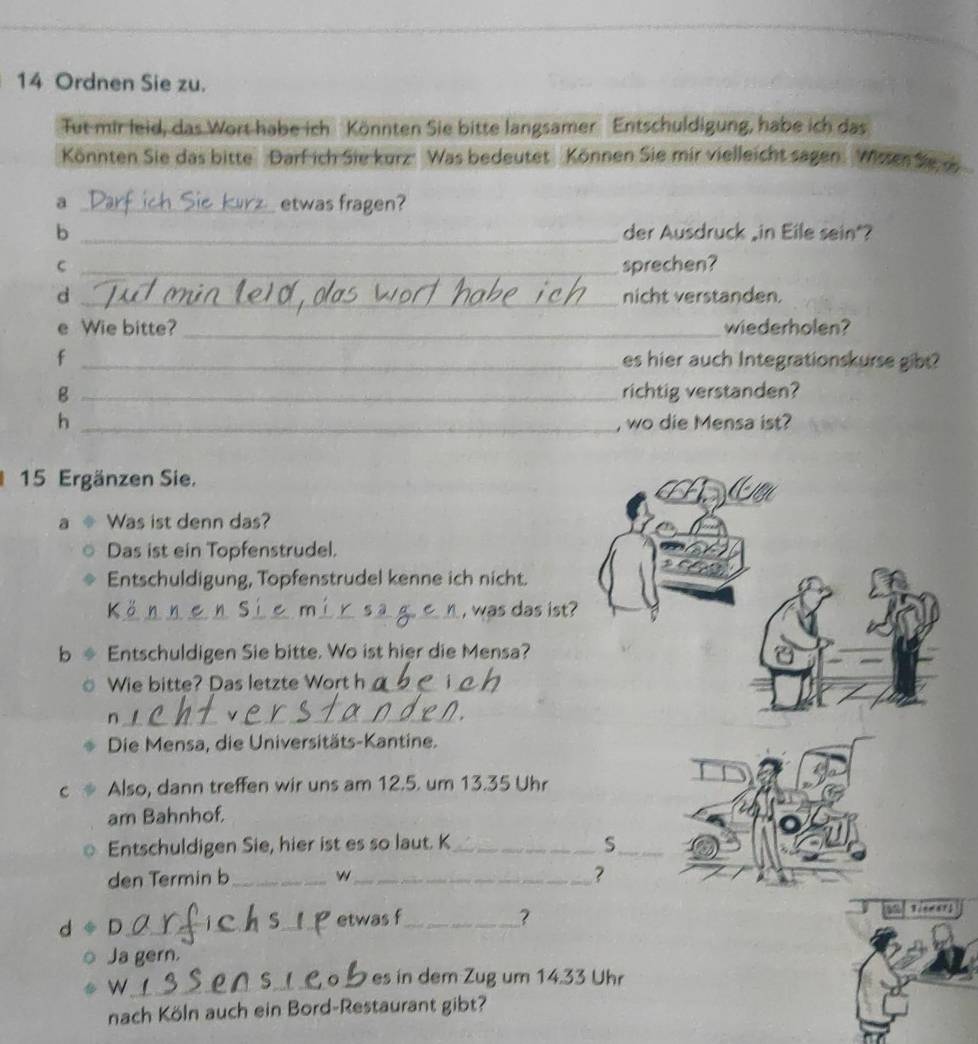 14 Ordnen Sie zu.
Tut mir leid, das Wort habe ich Könnten Sie bitte langsamer Entschuldigung, habe ich das
Könnten Sie das bitte Darf ich Sie kurz Was bedeutet Können Sie mir vielleicht sagen Wissen Sie, ob
a Darf ich Sie kurz etwas fragen?
b ___ der Ausdruck „in Eile sein“?
c ___ sprechen?
d Tut min leid, das wort habe ich nicht verstanden.
e Wie bitte? ___ wiederholen?
f ___ es hier auch Integrationskurse gibt?
g ___ richtig verstanden?
h ___, wo die Mensa ist?
15 Ergänzen Sie.
a Was ist denn das?
Das ist ein Topfenstrudel.
Entschuldigung, Topfenstrudel kenne ich nicht.
Können Sie mir sagen, was das ist?
b Entschuldigen Sie bitte. Wo ist hier die Mensa?
Wie bitte? Das letzte Wort habe ich
nicht verstanden.
Die Mensa, die Universitäts-Kantine.
c Also, dann treffen wir uns am 12.5. um 13.35 Uhr
am Bahnhof.
Entschuldigen Sie, hier ist es so laut. K_ _ _ _ _ _ S_ _
den Termin b_ _ _ _ w_ _ _ _ _ _ _ _ _ _?
d Darf ich sie etwas f_ _ _ _ _?
Ja gern.
Wissen sie ob es in dem Zug um 14.33 Uhr
nach Köln auch ein Bord-Restaurant gibt?